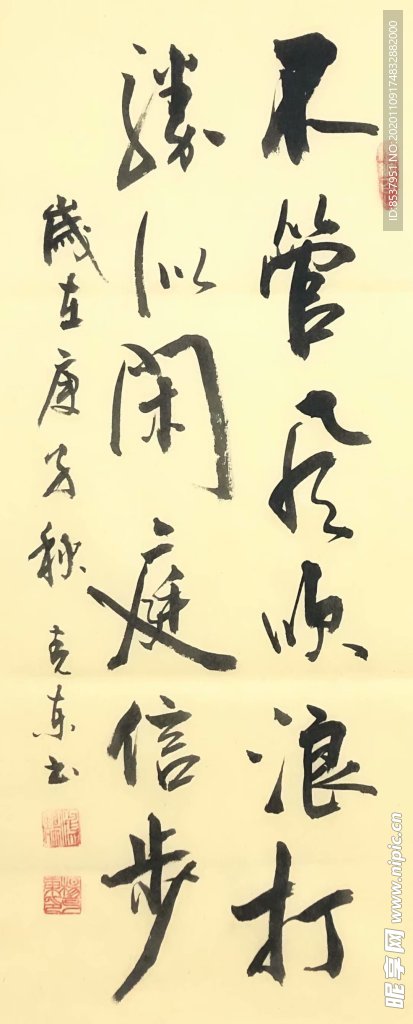 不管风吹浪打
勝似閑庭信步
歲在庚子秋 克東书
ID:8537951 NO:20201109174832882000
昵享网 www.nipic.cn